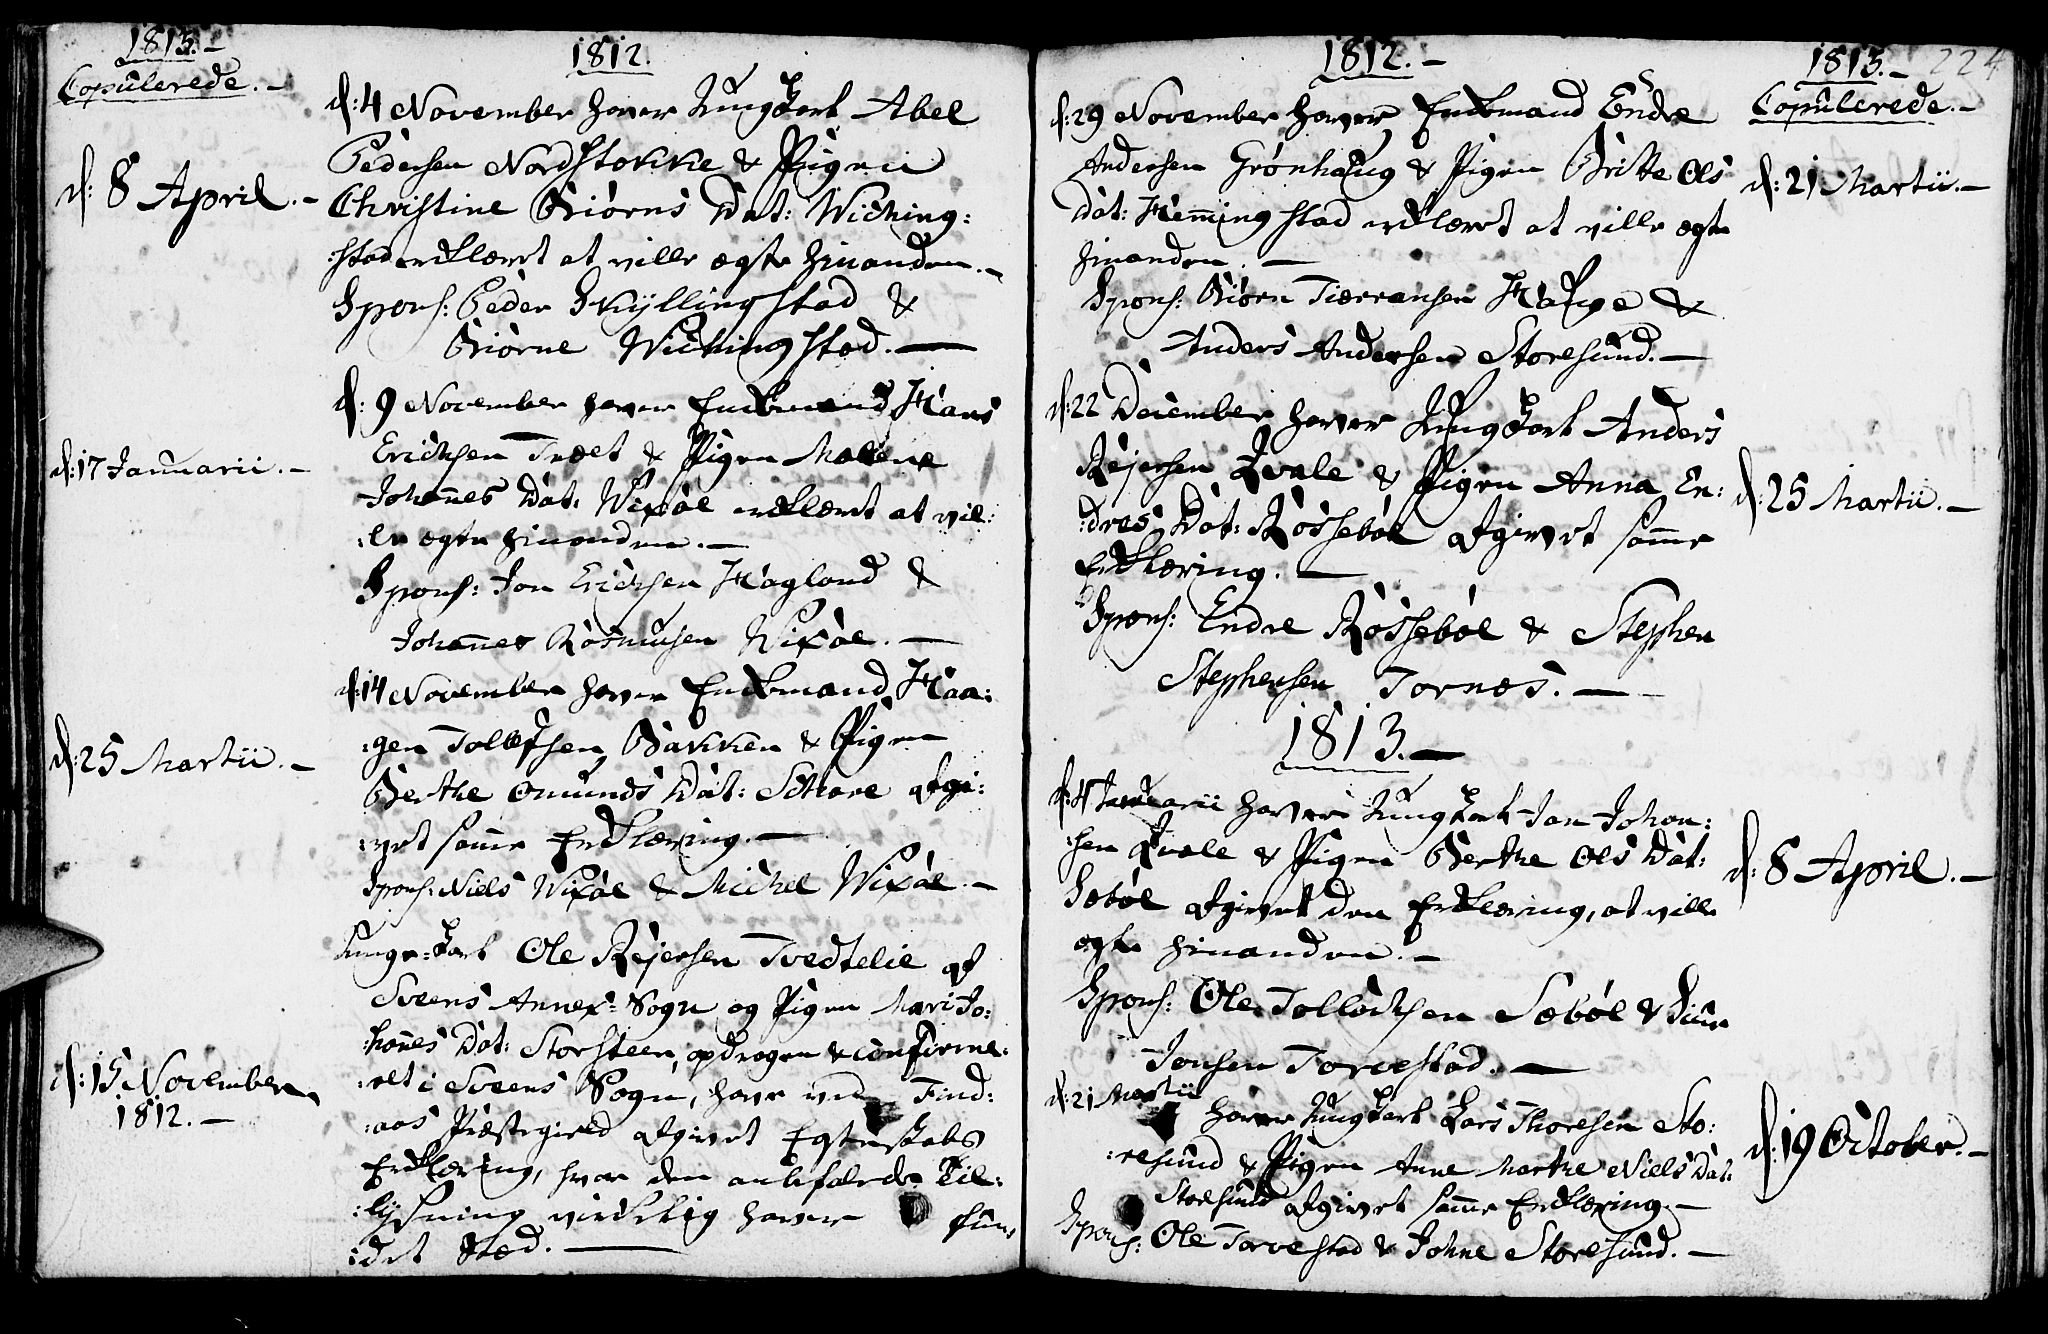 1813.-
Copulerede.-
d: 8 April.-
d: 17 Januarii.-
d: 25 Martii.-
d: 15 November
1812.-
1812.
d: 4 November haver Ungkarl Abel
Pedersen Nordstokke & Pigen
Christine Biørns Dat: Wiching:
:stad erklæret at ville ægte hinanden.-
Spons: Peder Skyllingstad &
Biørne Wichingstad.-
d: 9 November haver Enkemand Hans
Erichsen Træet & Pigen Malene
Johannes Dat: Wixøe erklæret at vil:
:le ægte hinanden.-
Spons: Jon Erichsen Hagland &
Johannes Rasmusen Wixøe.-
d: 14 November haver Enkemand Haa:
:gen Tollefsen Bakken & Pigen
Berthe Omunds Dat: Schare afgi:
:vet samme Erklæring.-
Spons: Niels Wixøe & Michel Wixøe.-
Ungkarl Ole Rejersen Tvedtelie af
Sveens Annex-Sogn og Pigen Mari Jo:
:hannes Dat: Storsteen, opdragen & confirme:
:ret i Sveens Sogn, have ved Find:
:aas Præstegield afgivet Egteskabs
Erklæring, hvor den anbefalede Til:
:lysning virkelig haver fun:
:det Sted.-
1812.-
d: 29 November haver Enkemand Endre
Andersen Grønhaug & Pigen Britte Ols
Dat: Hemmingstad erklæret at ville ægte
hinanden.-
Spons: Biørn Tierransen Hauge &
Anders Andersen Storesund.-
d: 22 December haver Ungkarl Anders
Rejersen Qvale & Pigen Anna En:
:dres Dat: Røssebøe afgivet samme
Erklæring.-
Spons: Endre Røssebøe & Stephen
Stephensen Tornes.-
1813.-
Januarii haver Ungkarl Jan Johan:
:sen Qvale & Pigen Berthe Ols Dat:
Sebøe afgivet den Erklæring, at ville
ægte hinanden.-
Spons: Ole Tollochsen Sebøe &
Jonsen Torvestad.-
d: 21 Martii
haver Ungkarl Lars Thoresen Sto:
:resund & Pigen Anne Marthe Niels Dat:
Storesund afgivet samme Erklæring.-
Spons: Ole Torvestad & Johne Storesund.-
1813.- 224
Copulerede.-
d: 21 Martii.-
d: 25 Martii.-
d: 8 April.-
d: 19 October.-